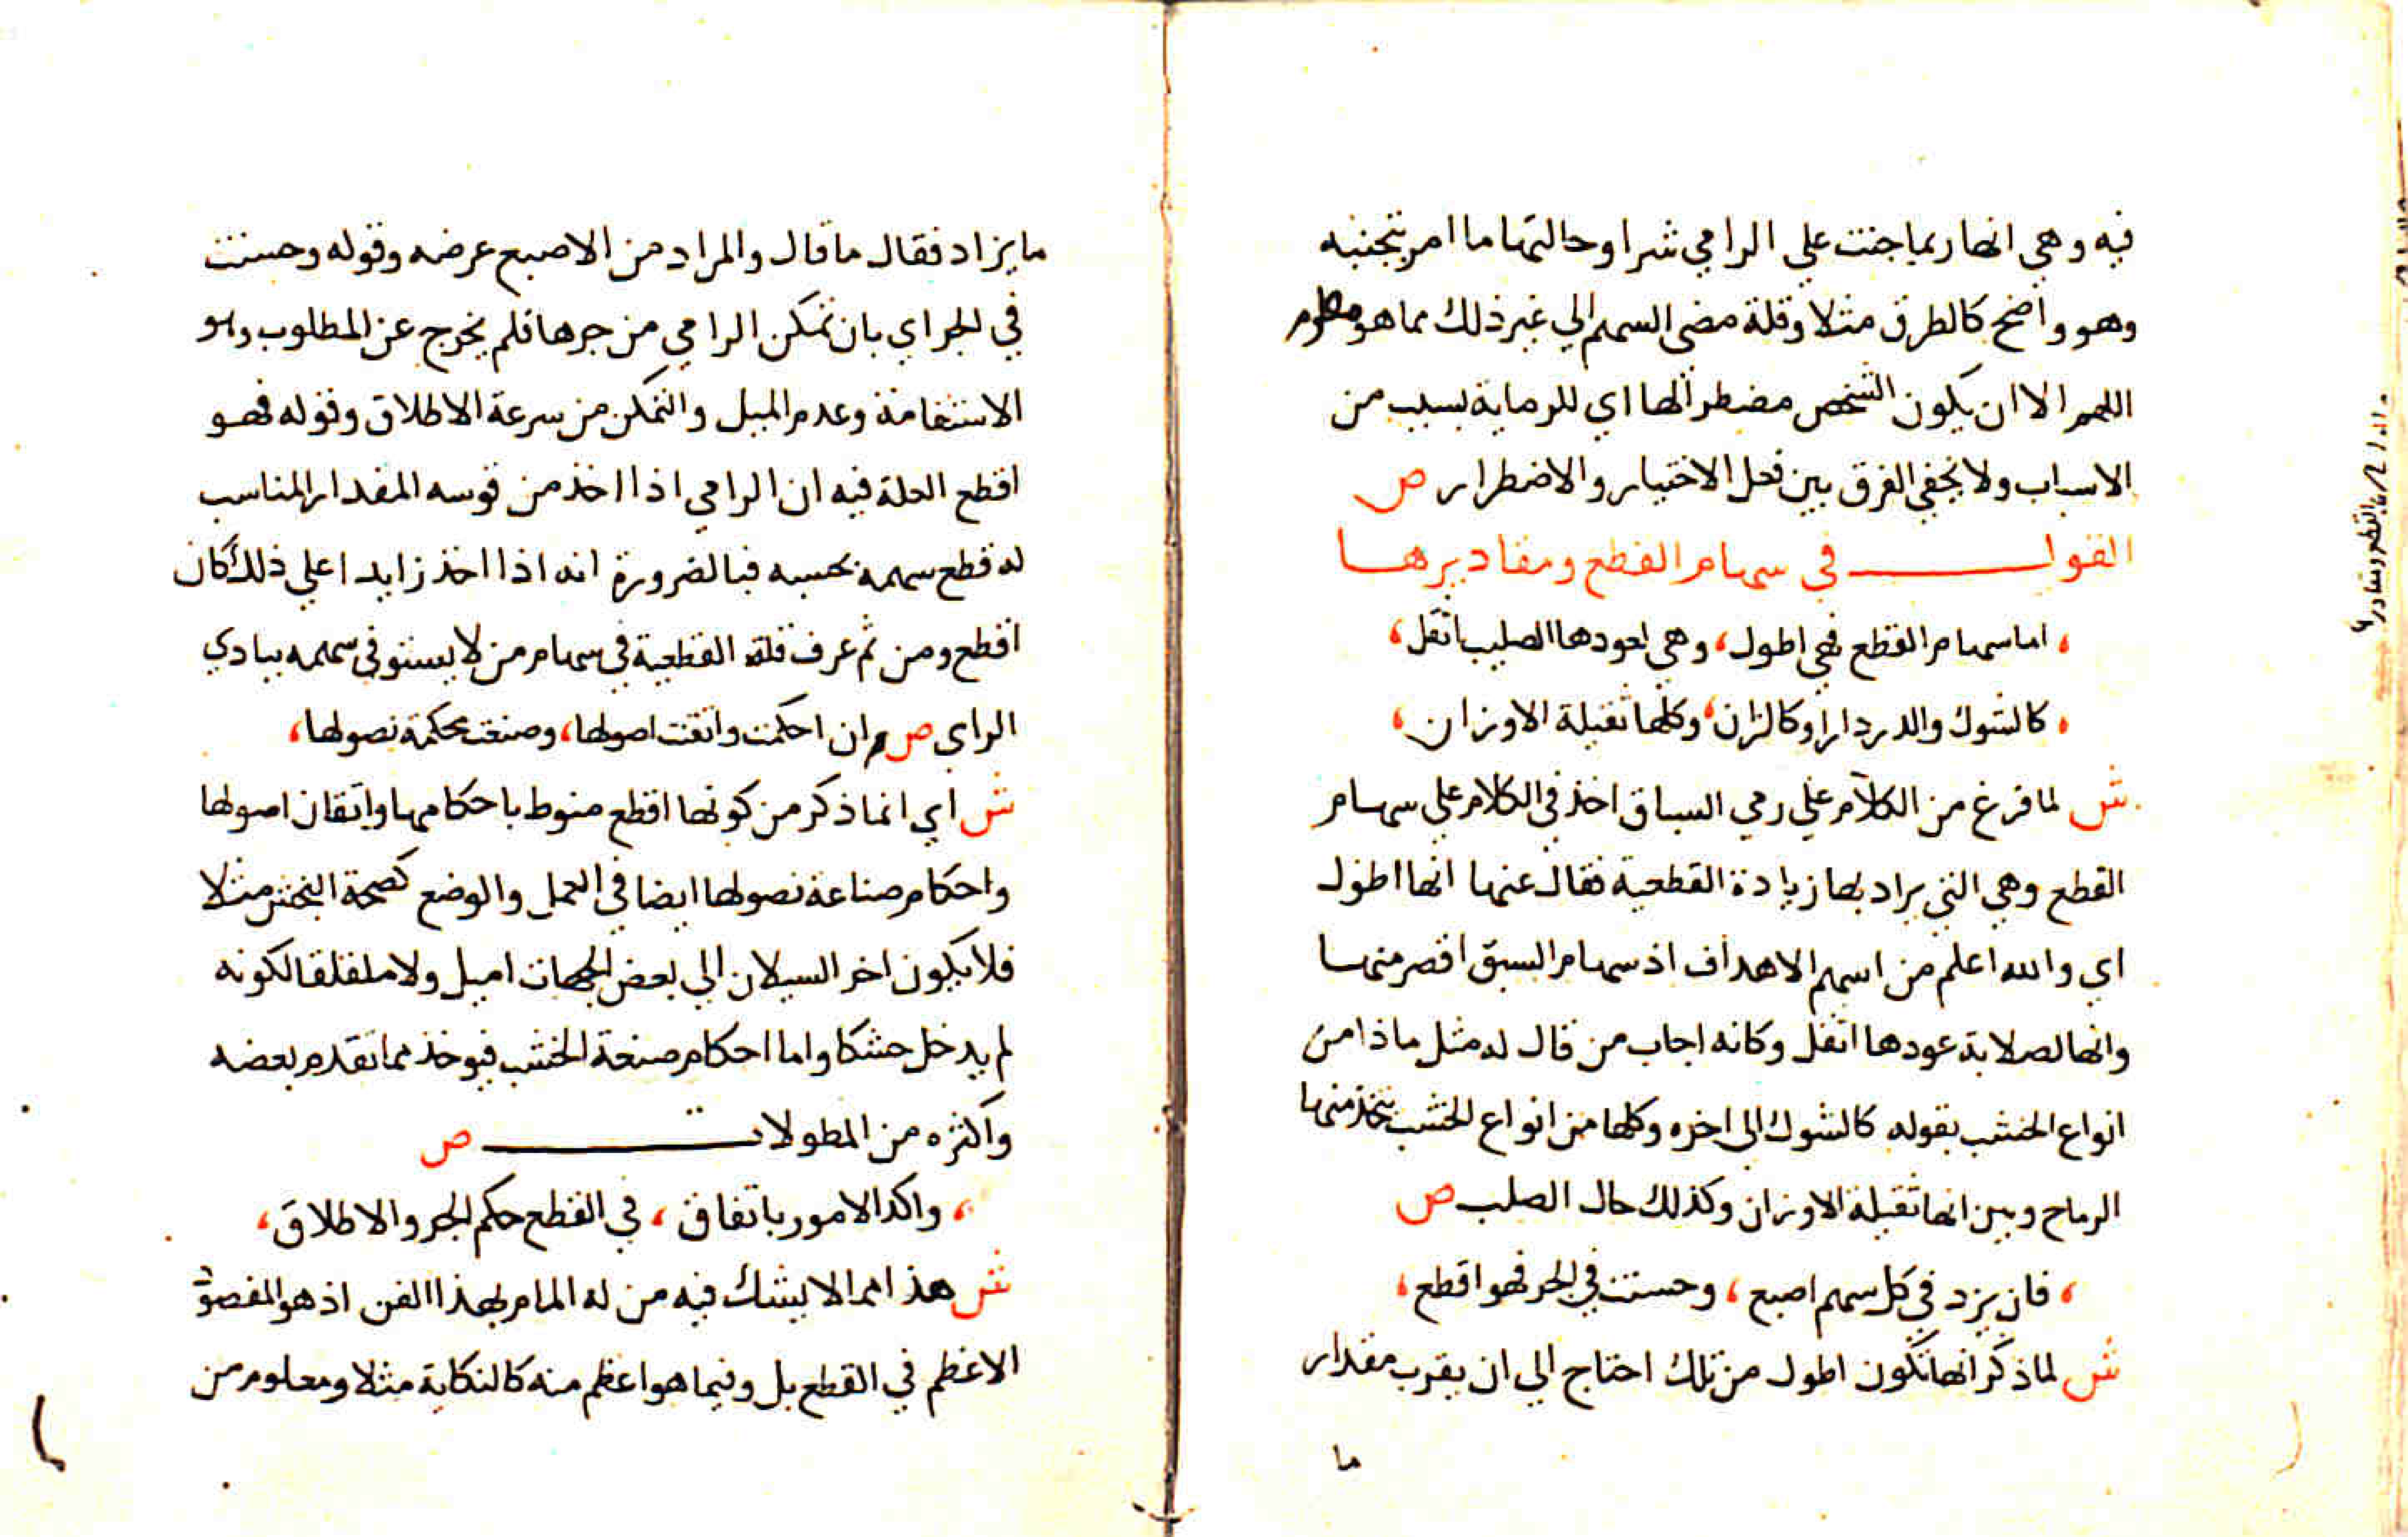 فيه وهي انها ربما جنت علي الرامي شرا وحالتها ما امر بتجنبه
وهو واضح كالطرق مثلا وقلة مضي السهم الي غير ذلك مما هو معلوم
اللهم الا ان يكون الشخص مضطر الها اي للرماية بسبب من
الاسباب ولا يخفي الفرق بين فعل الاختيار والاضطرار ص
القول في سهام القطع ومقاديرها
، اما سهام القطع فهي اطول ، وهي لعودها الصليب اثقل ،
، كالشوك والدردار او كالزان ، وكلها ثقيلة الاوزان ،
ش لما فرغ من الكلام علي رمي السباق اخذ في الكلام علي سهام
القطع وهي التي يراد بها زيادة القطعية فقال عنها انها اطول
اي والله اعلم من اسهم الاهداف اذ سهام السبق اقصر منها
وانها لصلابة عودها اثقل وكانه اجاب من قال له مثل ماذا من
انواع الخشب بقوله كالشوك الى اخره وكلها من انواع الخشب يتخذ منها
الرماح وبين انها ثقيلة الاوزان وكذلك حال الصلب ص
، فان يزد في كل سهم اصبع ، وحسنت في الجر فهو اقطع ،
ش لما ذكر انها تكون اطول من تلك احتاج الي ان يقرب مقدار
ما
ما يزاد فقال ما قال والمراد من الاصبع عرضه وقوله وحسنت
في الجر اي بان تمكن الرامي من جرها فلم يخرج عن المطلوب وهو
الاستقامة وعدم الميل والتمكن من سرعة الاطلاق وقوله فهو
اقطع العلة فيه ان الرامي اذا اخذ من قوسه المقدار المناسب
له قطع سهمه بحسبه فبالضرورة انه اذا اخذ زايدا علي ذلك كان
اقطع ومن ثم عرف قلة القطعية في سهام من لا يستوفى سهمه ببادي
الراى ص ان احكمت واتقنت اصولها ، وصنعت محكمة نصولها ،
ش اي انما ذكر من كونها اقطع منوط باحكامها واتقان اصولها
واحكام صناعة نصولها ايضا في العمل والوضع كصحة البخش مثلا
فلا يكون اخر السيلان الي بعض الجهات اميل ولا ملقلقا لكونه
لم يدخل حشكا واما احكام صنعة الخشب فيوخذ مما تقدم بعضه
واكثره من المطولات ص
، واكد الامور باتفاق ، في القطع حكم الجر والاطلاق ،
ش هذا مما لا يشك فيه من له المام بهذا الفن اذ هو المقصود
الاعظم في القطع بل وفيما هو اعظم منه كالنكاية مثلا ومعلوم من
القطع ومقاديرها